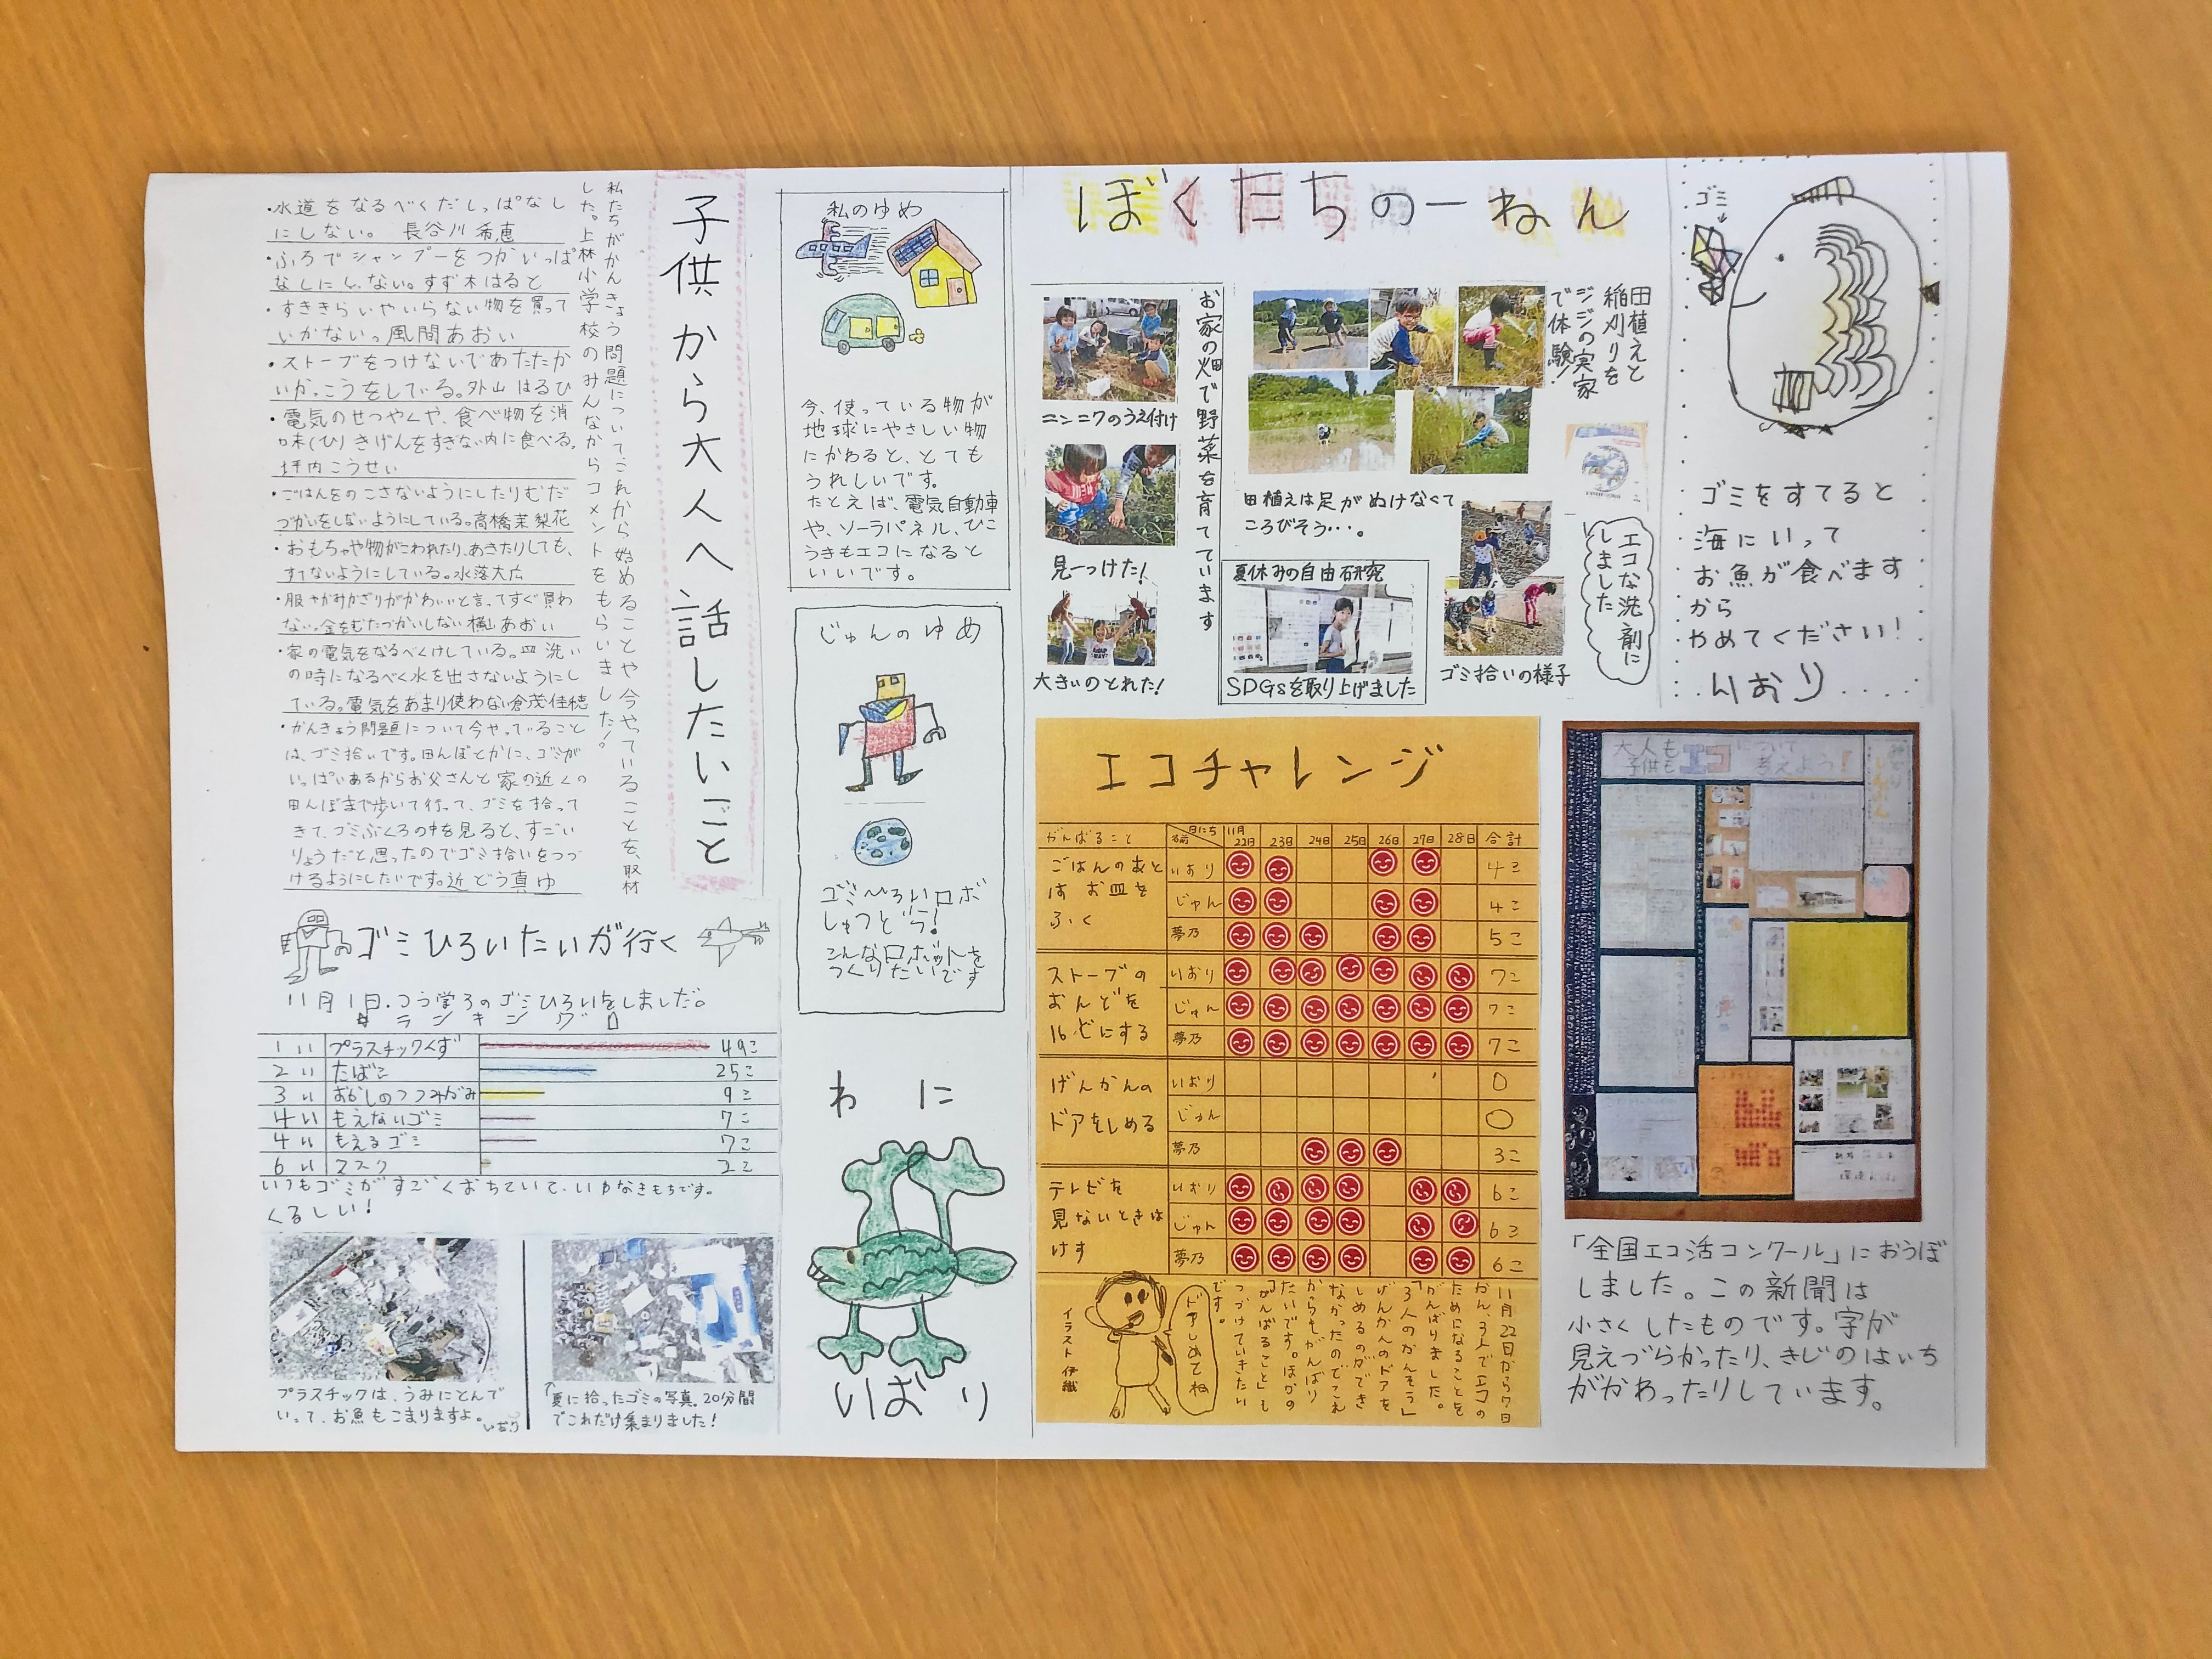 ぼくたちの一ねん
ゴミ
ゴミをすてると
海にいって
お魚が食べます
から
やめてください!
いおり
田植えと
稲刈りを
ジジの実家
で体験!
田植えは足がぬけなくて
ころびそう・・・。
エコな洗剤に
しました
ゴミ拾いの様子
夏休みの自由研究
SDGsを取り上げました
お家の畑で野菜を育てています
ニンニクのうえ付け
見ーつけた!
大きいのとれた!
エコチャレンジ
がんばること 名前 日にち 11月22日 23日 24日 25日 26日 27日 28日 合計
ごはんのあと
はお皿を
ふく
いおり 4こ
じゅん 4こ
夢乃 5こ
ストーブの
おんどを
16どにする
いおり 7こ
じゅん 7こ
夢乃 7こ
げんかんの
ドアをしめる
いおり 0
じゅん 0
夢乃 3こ
テレビを
見ないときは
けす
いおり 6こ
じゅん 6こ
夢乃 6こ
11月22日から7日
かん、3人でエコの
ためになることを
がんばりました。
「3人のかんそう」
げんかんのドアを
しめるのができ
なかったのでこれ
からもがんばり
たいです。ほかの
「がんばること」も
つづけていきたい
です。
ドアしめてね
イラスト 伊織
大人も
子供も
エコについて
考えよう!
「全国エコ活コンクール」におうぼ
しました。この新聞は
小さくしたものです。字が
見えづらかったり、きじのはいち
がかわったりしています。
私のゆめ
今、使っている物が
地球にやさしい物
にかわると、とても
うれしいです。
たとえば、電気自動車
や、ソーラパネル、ひこ
うきもエコになると
いいです。
じゅんのゆめ
ゴミひろいロボ
しゅつどう!
こんなロボットを
つくりたいです
わに
いおり
子供から大人へ話したいこと
私たちがかんきょう問題についてこれから始めることや今やっていることを、取材
した。上林小学校のみんなからコメントをもらいました!
・水道をなるべくだしっぱなし
にしない。 長谷川希恵
・ふろでシャンプーをつかいっぱ
なしにしない。すず木はると
・すききらいやいらない物を買って
いかないっ風間あおい
・ストーブをつけないであたたか
いかっこうをしている。外山はるひ
・電気のせつやくや、食べ物を消
味(ひ)きげんをすぎない内に食べる。
坪内こうせい
・ごはんをのこさないようにしたりむだ
づかいをしないようにしている。高橋茉梨花
・おもちゃや物がこわれたり、あきたりしても、
すてないようにしている。水落大広
・服やかみかざりがかわいいと言ってすぐ買わ
ない。金をむだづかいしない横山あおい
・家の電気をなるべくけしている。皿洗い
の時になるべく水を出さないようにし
ている。電気をあまり使わない倉茂佳穂
・かんきょう問題について今やっていること
は、ゴミ拾いです。田んぼとかに、ゴミが
いっぱいあるからお父さんと家の近くの
田んぼまで歩いて行って、ゴミを拾って
きて、ゴミぶくろの中を見ると、すごい
りょうだと思ったのでゴミ拾いをつづ
けるようにしたいです。近どう真ゆ
ゴミひろいたいが行く
11月1日、つう学ろのゴミひろいをしました。
ランキング
1い プラスチックくず 49こ
2い たばこ 25こ
3い おかしのつつみがみ 9こ
4い もえないゴミ 7こ
4い もえるゴミ 7こ
6い マスク 2こ
いつもゴミがすごくおちていて、いやなきもちです。
くるしい!
プラスチックは、うみにとんで
いって、お魚もこまりますよ。いおり
↑夏に拾ったゴミの写真。20分間
でこれだけ集まりました!